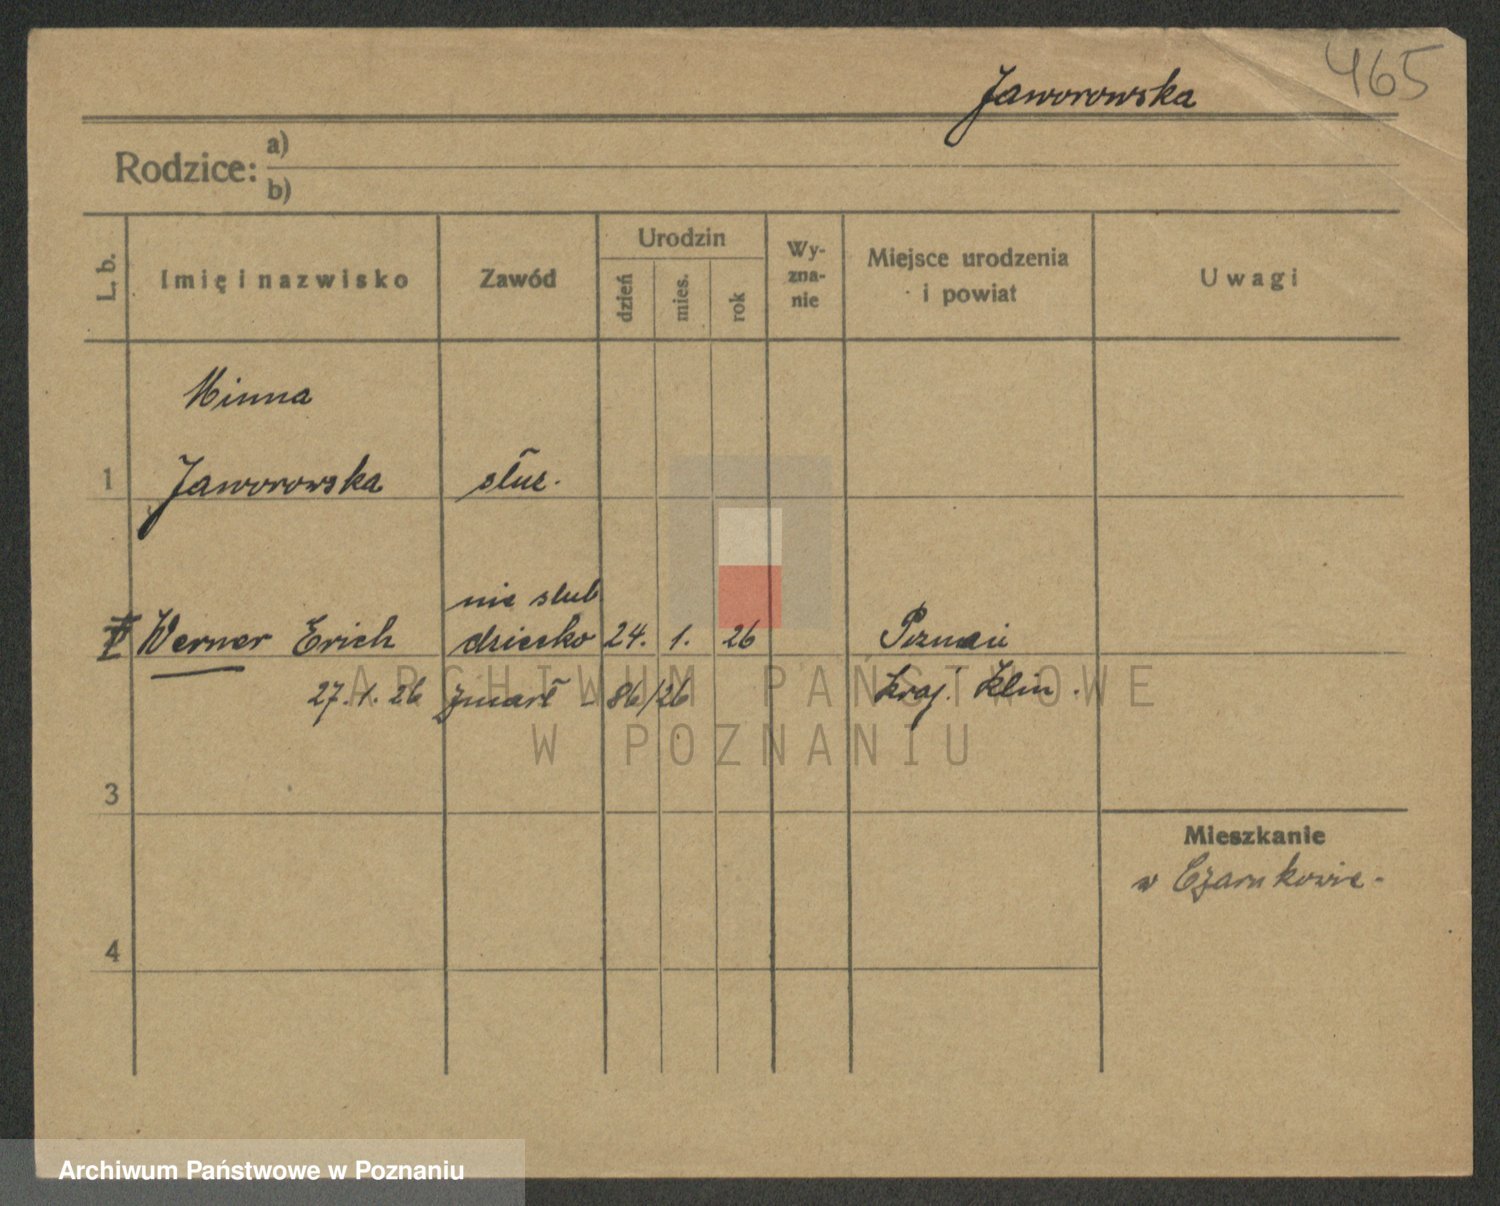 465
Jaworowska
Rodzice: a)
b)
L. b.
Imię i nazwisko
Zawód
Urodzin
dzień
mies.
rok
Wy-
zna-
nie
Miejsce urodzenia
i powiat
Uwagi
Minna
1 Jaworowska służ.
nie ślub
Werner Erich dziecko 24. 1. 26 Poznań
27.1.26 zmarł - 86/26 kraj. Klin.
3
Mieszkanie
w Czarnkowie -
4
ARCHIWUM PAŃSTWOWE
W POZNANIU
Archiwum Państwowe w Poznaniu